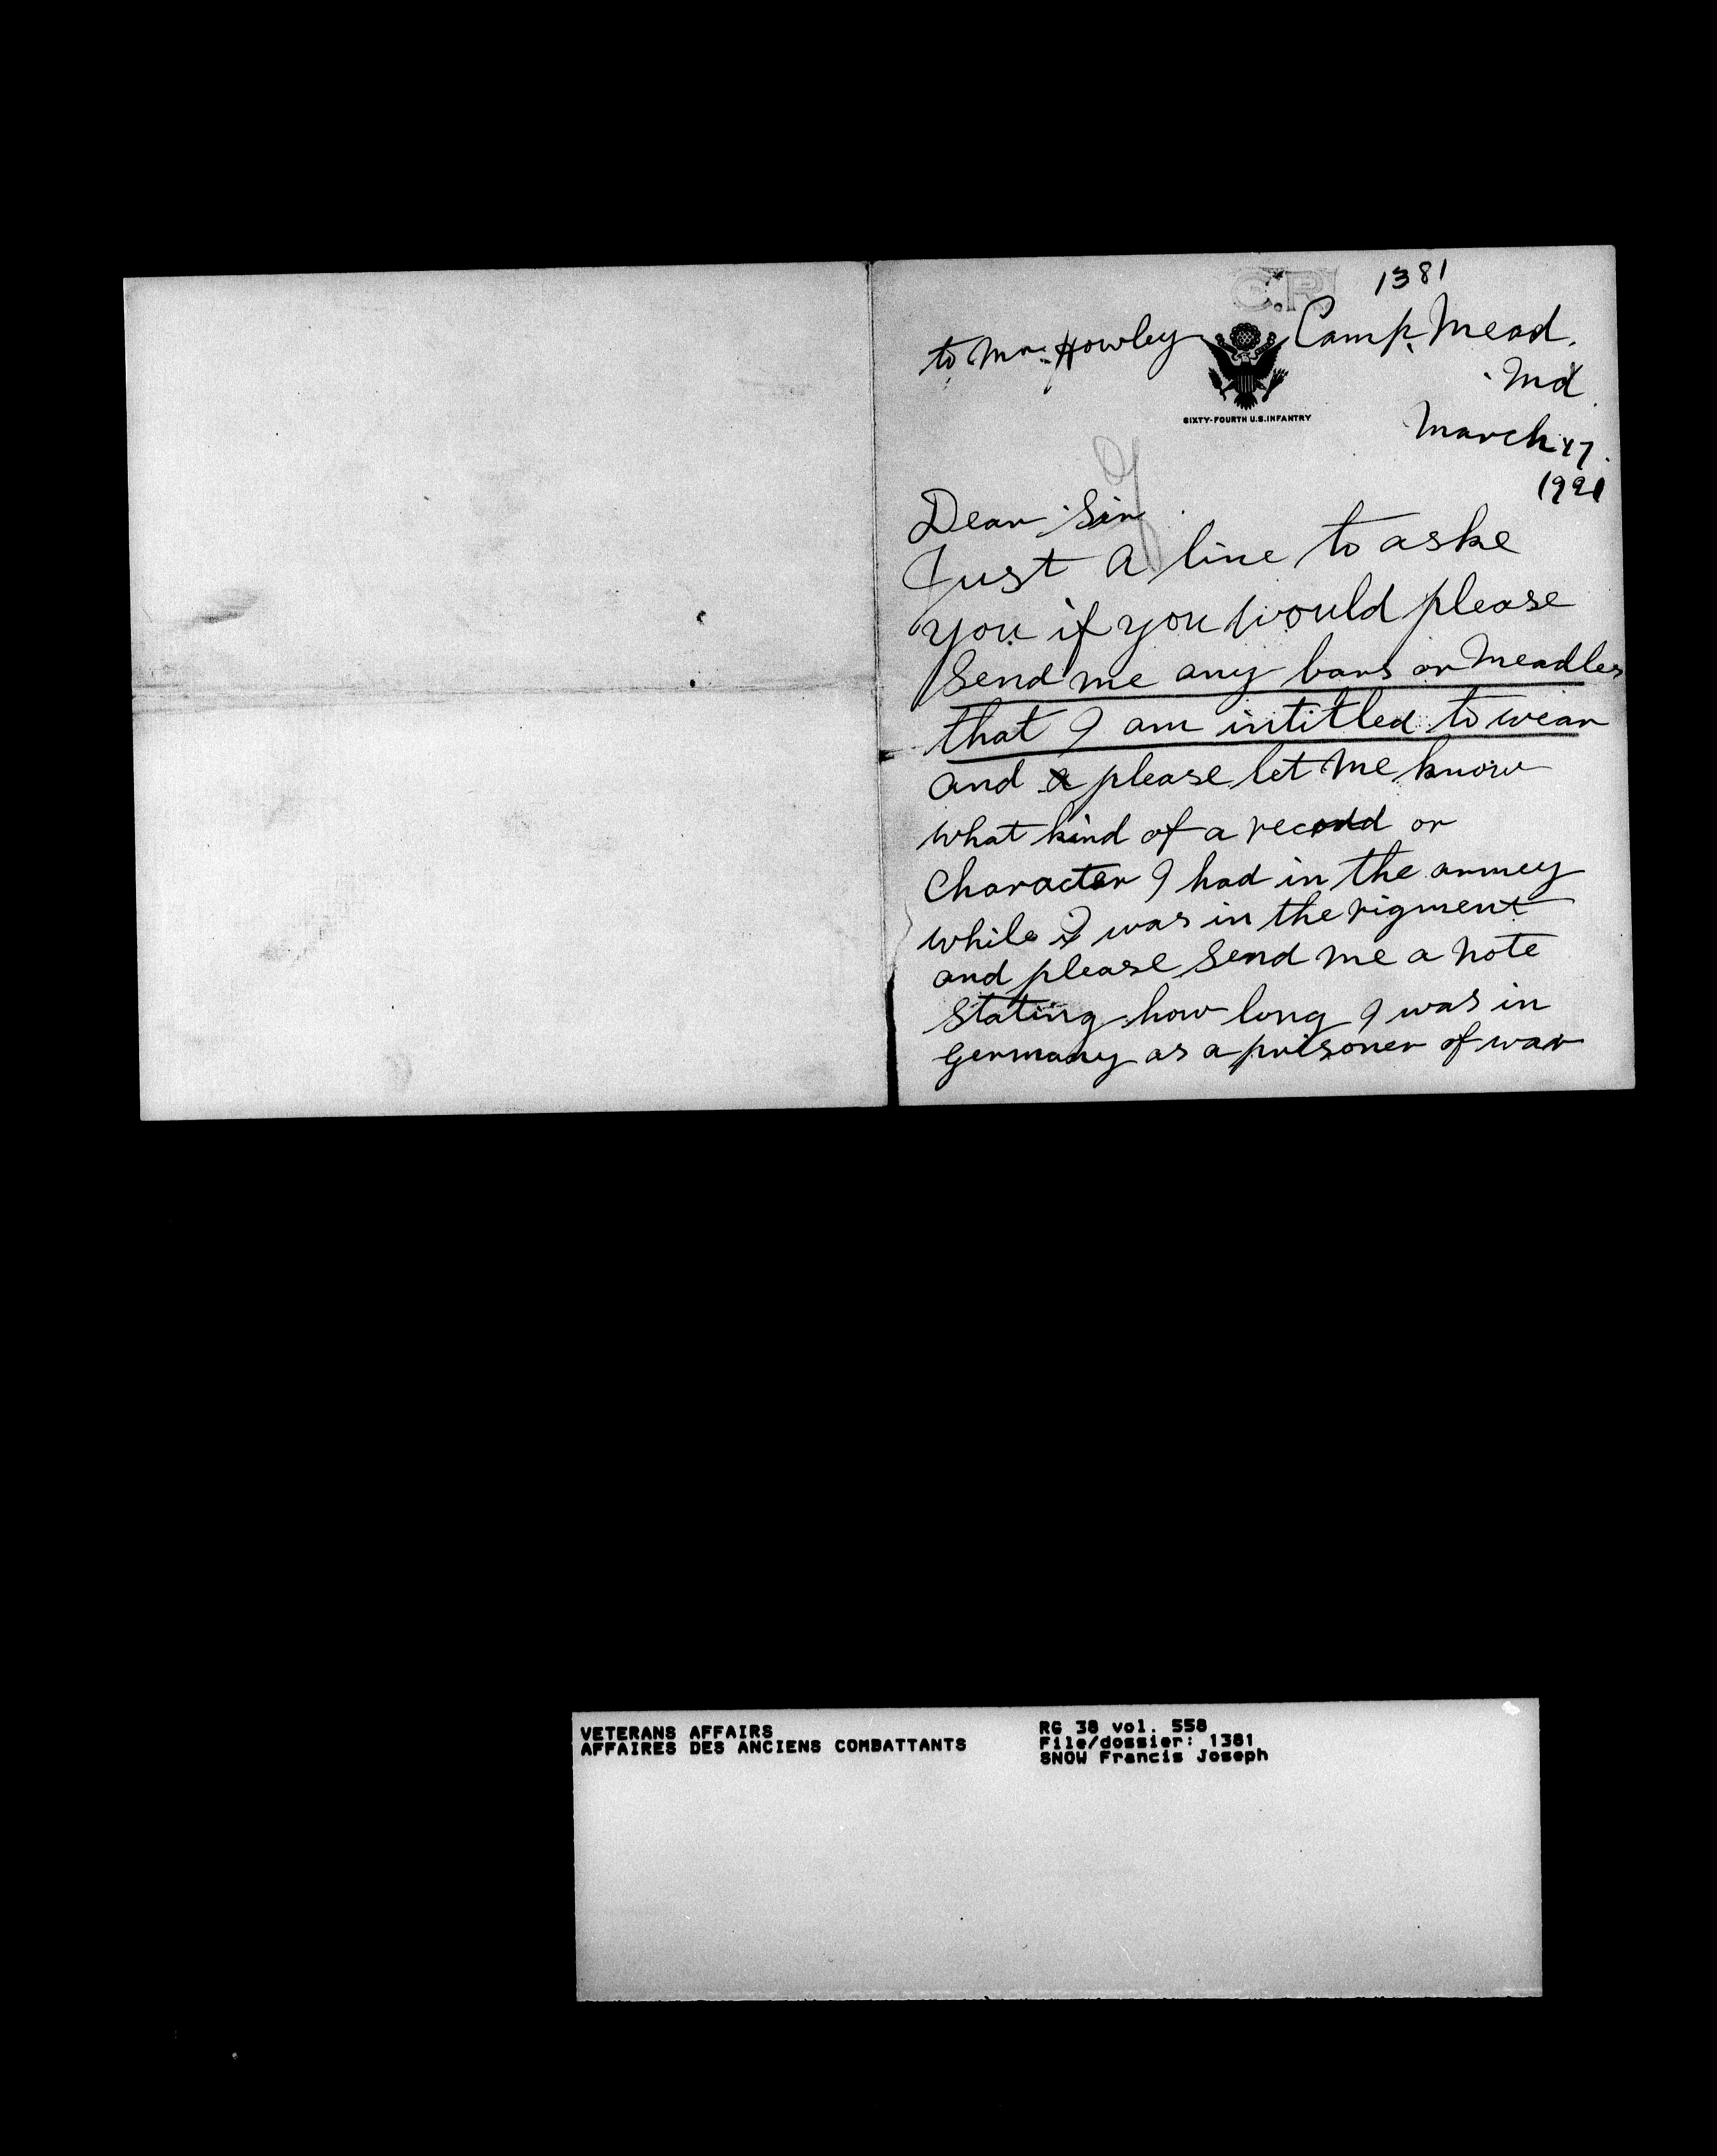 C.R.
1381
to Mr. Howley
Camp. Mead.
Md.
SIXTY-FOURTH U.S. INFANTRY
March 17.
1921
Dear Sir
Just a line to aske
you if you would please
send me any bars or meadles
that I am intitled to wear
and please let me know
what kind of a record or
character I had in the armey
while I was in the rigment
and please send me a note
stating how long I was in
germany as a prisoner of war
VETERANS AFFAIRS
AFFAIRES DES ANCIENS COMBATTANTS
RG 38 vol. 558
File/dossier: 1381
SNOW Francis Joseph